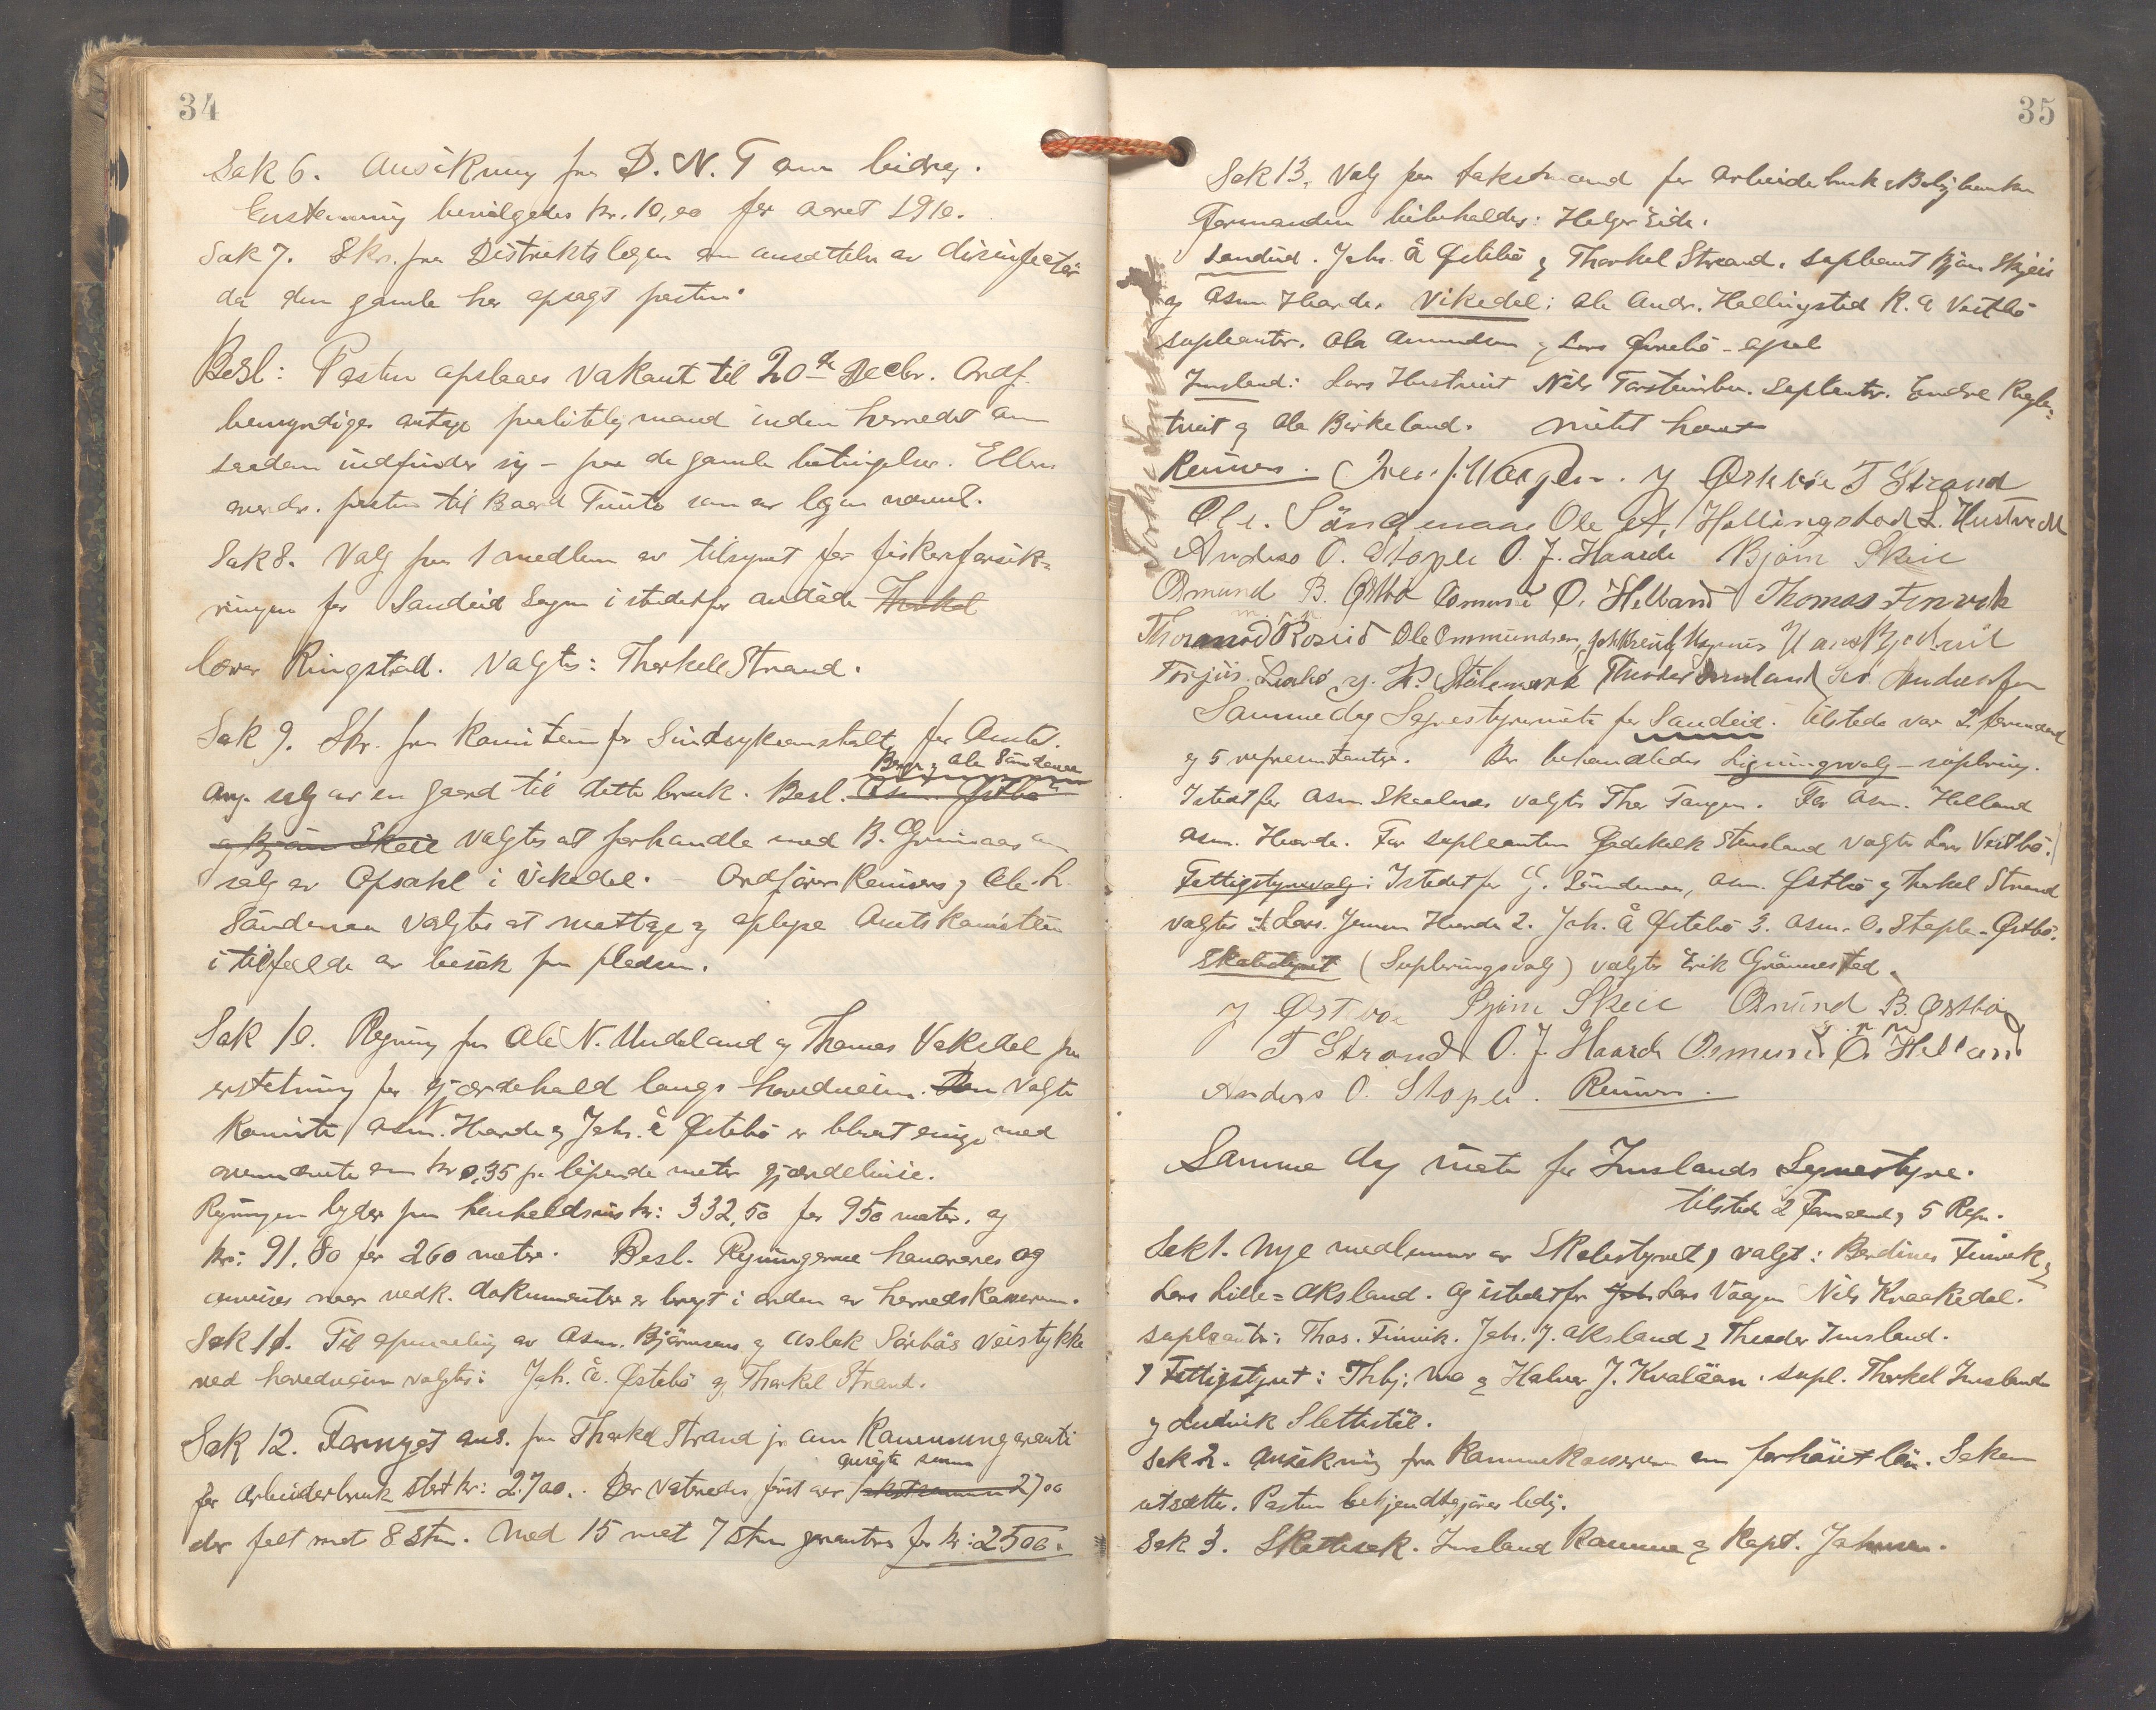 34
Sak 6. Ansökning fra D. N. T om bidrag.
Enstemmig bevilgedes kr. 10,00 for aaret 1910.
Sak 7. Skr. fra Distriktslegen om ansættelse av disinfectör
da den gamle har opsagt posten.
Besl: Posten opslaaes vakant til 20de Decbr. Ordf.
bemyndiges antage paalitelig mand inden herredet om
saadan indfinder sig – paa de gamle betingelser. Ellers
overdr. posten til Baard
Sak 8. Valg paa 1 medlem av tilsynet for fiskerforsik=
ringen for Sandeid Sogn i stedetfor avdöde Thorkel
Ringstad. Valgtes: Thorkell Strand.
Sak 9. Skr. fra Komiteen for Sindsykeanstalt for Amtet.
Berge og Ole Söndenaa
ang. salg av en gaard til dette bruk. Besl. Osm. Östbö
og Björn Skeie valgtes at forhandle med B. Grinnaas om
salg av Opsahl i Vikedal. – Ordförer Reimers og Ole L.
Söndenaa valgtes at mottage og Amtskomiteen
i tilfælde av besök paa pladsen.
Sak 10. Regning fra Ole N. Undeland og Thomas Vaksdal paa
erstatning for gjærdehald langs hovedveien. Den valgte
Komite Asm. Haarde og Joh. Å Östebö er blevet enige med
ovennævnte om kr 0,35 pr löpende meter gjærdelinie.
Regningen lyder paa henholdsvis kr: 332,50 for 950 meter. og
kr: 91.80 for 260 meter. Besl. Regningerne honoreres og
anvises naar vedk. dokumenter er bragt i orden av herredskasseren.
Sak 11. Til opmaaling av Asm. Björnsens og Aslak Sörbös veistykke
ved hovedveien valgtes: Joh. Å. Östebö og Thorkel Strand.
Sak 12. Fornyet ans. fra Thorkel Strand jr om Kommunegaranti
ansögte sum
for Arbeiderbruk stort kr: 2700. Der voteredes först over 2700
der falt mot 8 stm. Med 15 mot 7 stm garanteres for kr: 2500.
35
Sak 13. Valg paa takstmænd for Arbeiderbruk & Boligbanken
Formanden bibeholdes: Helge Eide.
Sandeid. Joh. Å Östebö og Thorkel Strand. Supleant Björn Skjeie
og Osm Haarde. Vikedal: Ole Andr. Hallingstad K. A Vestbö
supleanter. Ole Amundsen og Lars
Imsland: Lars Hustveit Nils Torsteinsbu. Supleanter. Endre Rygle=
tveit og Ole Birkeland. mötet hævet
Reimers. J Östebö T Strand
Ole L. Söndenaa Ole A. Hallingstad L. Hustvedt
Anders O. Stople O. J. Haarde Björn Skeie
Osmund B. Östbö Osmund O. Helland Thomas Finvik
Rosseid Ole Ommundsen,
J. H. Stölsmark Theodor Imsland
Sammedag Sognestyremöte for Sandeid. tilstede var 2 formænd
og 5 representanter. Der behandledes Ligningsvalg – supplering.
Istedetfor Asm Skaalnes valgtes Thor Tangen. For Asm. Helland
Asm. Haarde. For supleanten Gadskalk Stensland valgtes Lars Vestbö.
Fattigstyrevalg: Istedetfor G. Söndenaa, Asm. Östbö og Thorkel Strand
valgtes 1. Lars Jensen Haarde 2. Joh. Å Östebö 3. Asm. O. Stople – Östbö.
Skolestyret (Supleringsvalg) valgtes Erik Grönnestad.
J Östebö Björn Skeie Osmund B. Östbö
T Strand O. J. Haarde Osmund O. Helland
Anders O. Stople. Reimers.
Samme dag möte for Imslands Sognestyre.
tilstede 2 Formænd og 5 Repr.
Sak 1. Nye medlemmer av Skolestyret, valgt: Berdines Finvik &
Lars Lille=Aksland. Og istedetfor Lars Vaagen Nils Kraakedal.
supleanter: Thos. Finvik. Joh. J. Aksland & Theodor Imsland.
I Fattigstyret: Thbj. Mo & Halvor J. Kvalåen. supl. Thorkel Imsland
og Ludvik Slettestöl.
Sak 2. Ansökning fra Kommunekasseren om forhöiet lön. Saken
utsættes. Posten bekjendtgjöres ledig.
Sak 3. Skattesak. Imsland Kommune & Kapt. Johnsen.